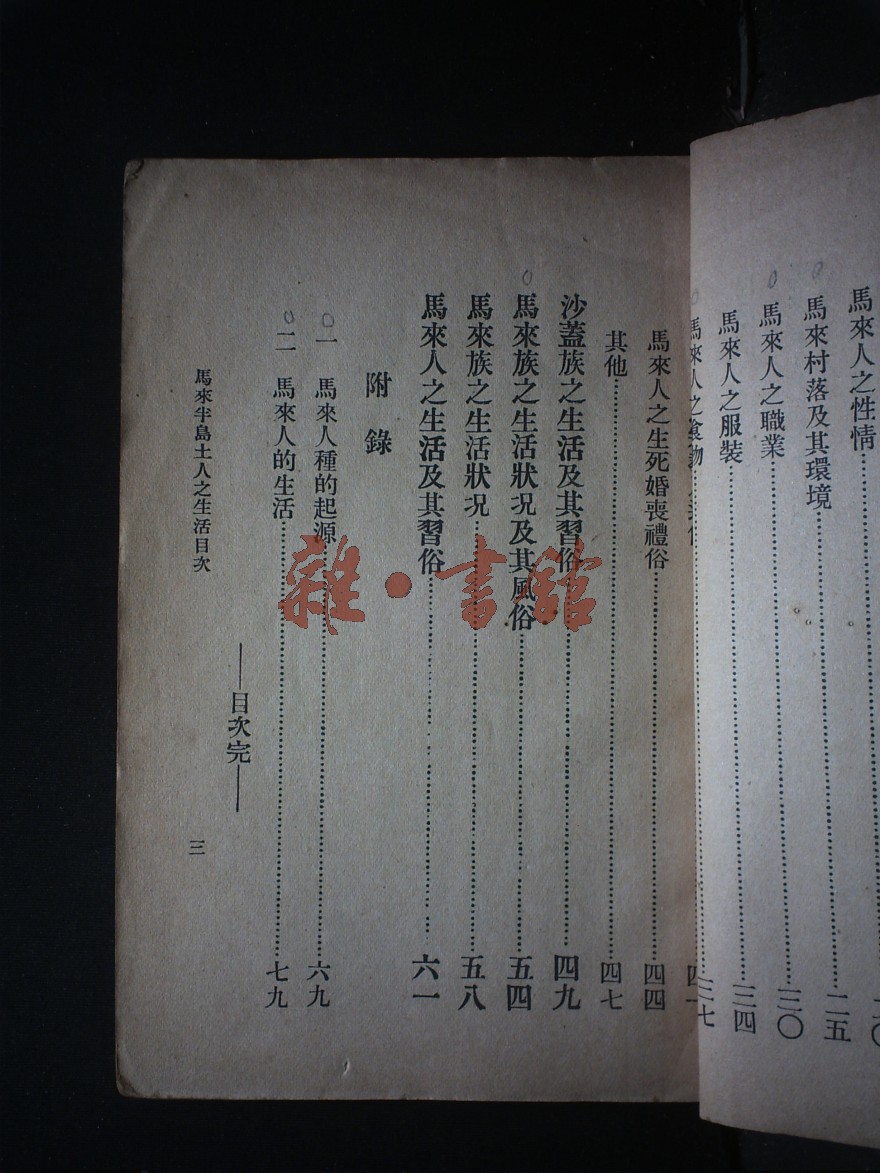 馬來人之性情 二〇
馬來村落及其環境 二五
馬來人之職業 三〇
馬來人之服裝 三四
馬來人之食物 三七
四一
馬來人之生死婚喪禮俗 四四
其他 四七
沙蓋族之生活及其習俗 四九
馬來族之生活狀況及其風俗 五四
馬來族之生活狀况 五八
馬來人之生活及其習俗 六一
附錄
一 馬來人種的起源 六九
二 馬來人的生活 七九
——目次完——
馬來半島土人之生活目次 三
雜·書館